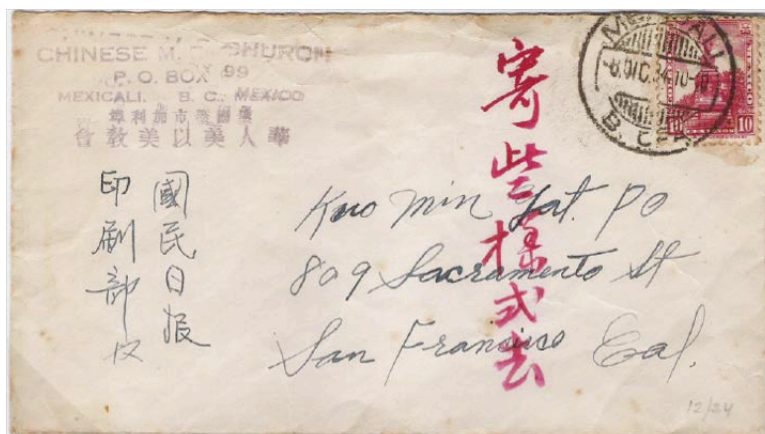 CHINESE M. E. CHURCH
P. O. BOX 99
MEXICALI, B. C., MEXICO
會教美以美人華
寄些樣式去
10 10
B. CFA
國民日报
印刷部收
Kuo Min Yat. Po
809 Sacramento St
San Francisco Cal.
12/34